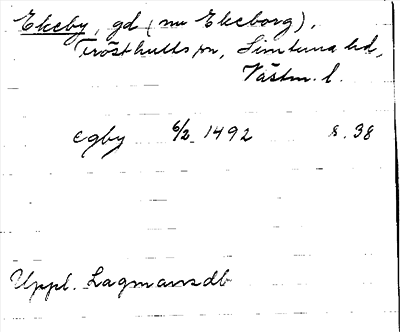 Ekeby, gd (nu Ekeborg),
Frösthults sn, Simtuna hd,
Västm. l.
egby 6/2 1492 s. 38
Uppl. Lagmansdb